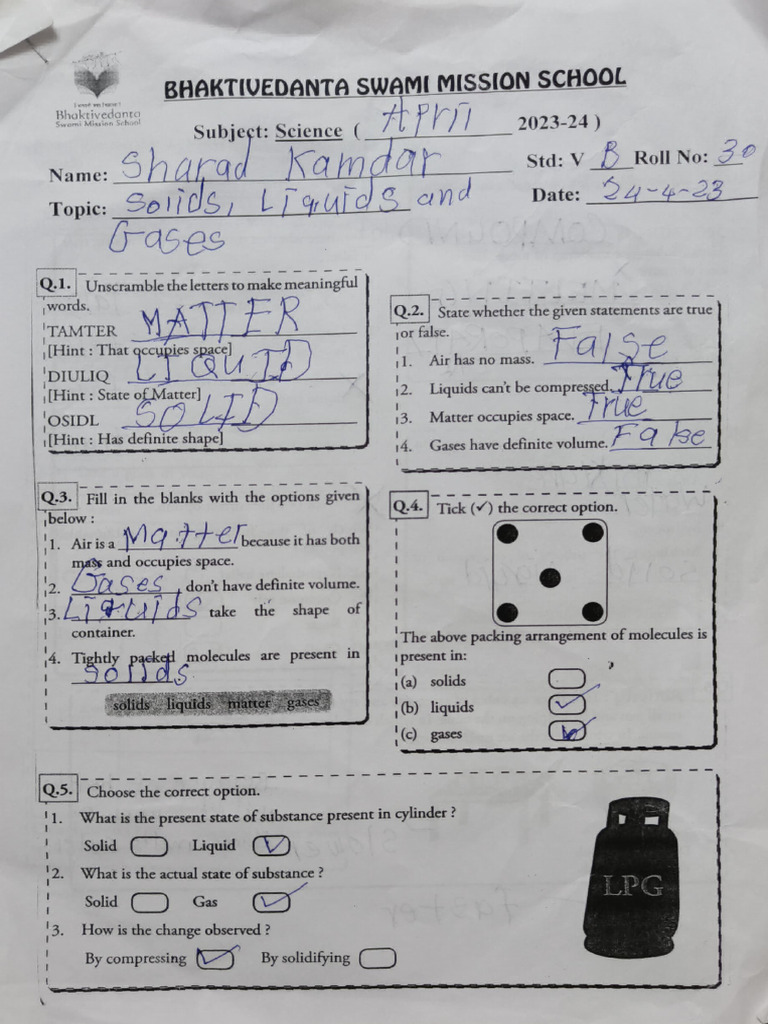 I went my heart !
Bhaktivedanta
Swami Mission School
BHAKTIVEDANTA SWAMI MISSION SCHOOL
Subject: Science ( April 2023-24 )
Name: Sharad Kamdar Std: V B Roll No: 30
Topic: Solids, Liquids and Date: 24-4-23
Gases
Q.1. Unscramble the letters to make meaningful
words.
TAMTER MATTER
[Hint : That occupies space]
DIULIQ LIQUID
[Hint : State of Matter]
OSIDL SOLID
[Hint : Has definite shape]
Q.2. State whether the given statements are true
or false.
1. Air has no mass. False
2. Liquids can't be compressed. True
3. Matter occupies space. True
4. Gases have definite volume. False
Q.3. Fill in the blanks with the options given
below :
1. Air is a Matter because it has both
mass and occupies space.
2. Gases, don't have definite volume.
3. Liquids take the shape of
container.
4. Tightly packed molecules are present in
solids
solids liquids matter gases
Q.4. Tick (✓) the correct option.
The above packing arrangement of molecules is
present in:
(a) solids
(b) liquids ✓
(c) gases
Q.5. Choose the correct option.
1. What is the present state of substance present in cylinder ?
Solid Liquid ✓
2. What is the actual state of substance ?
Solid Gas ✓
3. How is the change observed ?
By compressing ✓ By solidifying
LPG